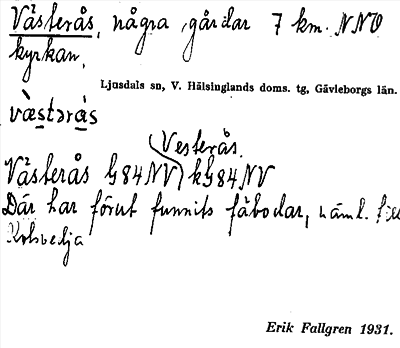 Västerås, några gårdar 7 km. NNO
kyrkan.
Ljusdals sn, V. Hälsinglands doms. tg, Gävleborgs län.
væ̀stərås
Vesterås.
Västerås G84NV kG84NV
Där har förut funnits fäbodar, näml. till
Erik Fallgren 1931.